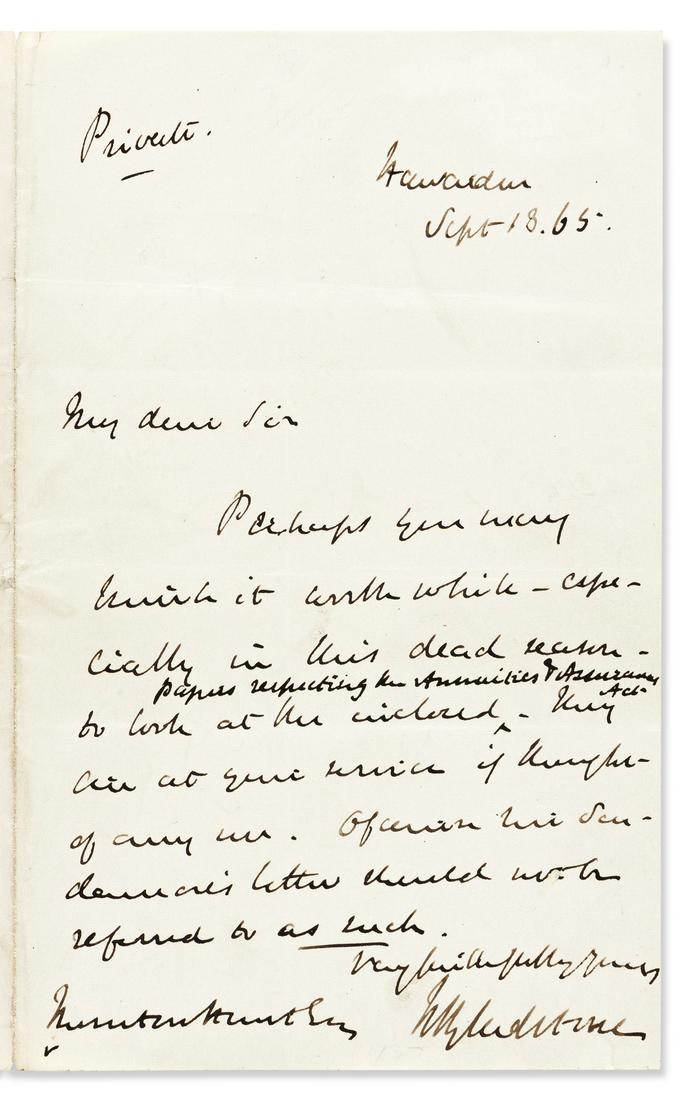 Private.
Hawarden
Sept 18. 65.
My dear Sir
Perhaps you may
think it worth while - espe-
cially in this dead season -
Papers respecting the Annuities & Assurances
Act
to look at the enclosed ^ - They
are at your service if thought
of any use. Of course the
letter should not be
referred to as such.
Very faithfully yours
Thornton Hunt Esq
WEGladstone